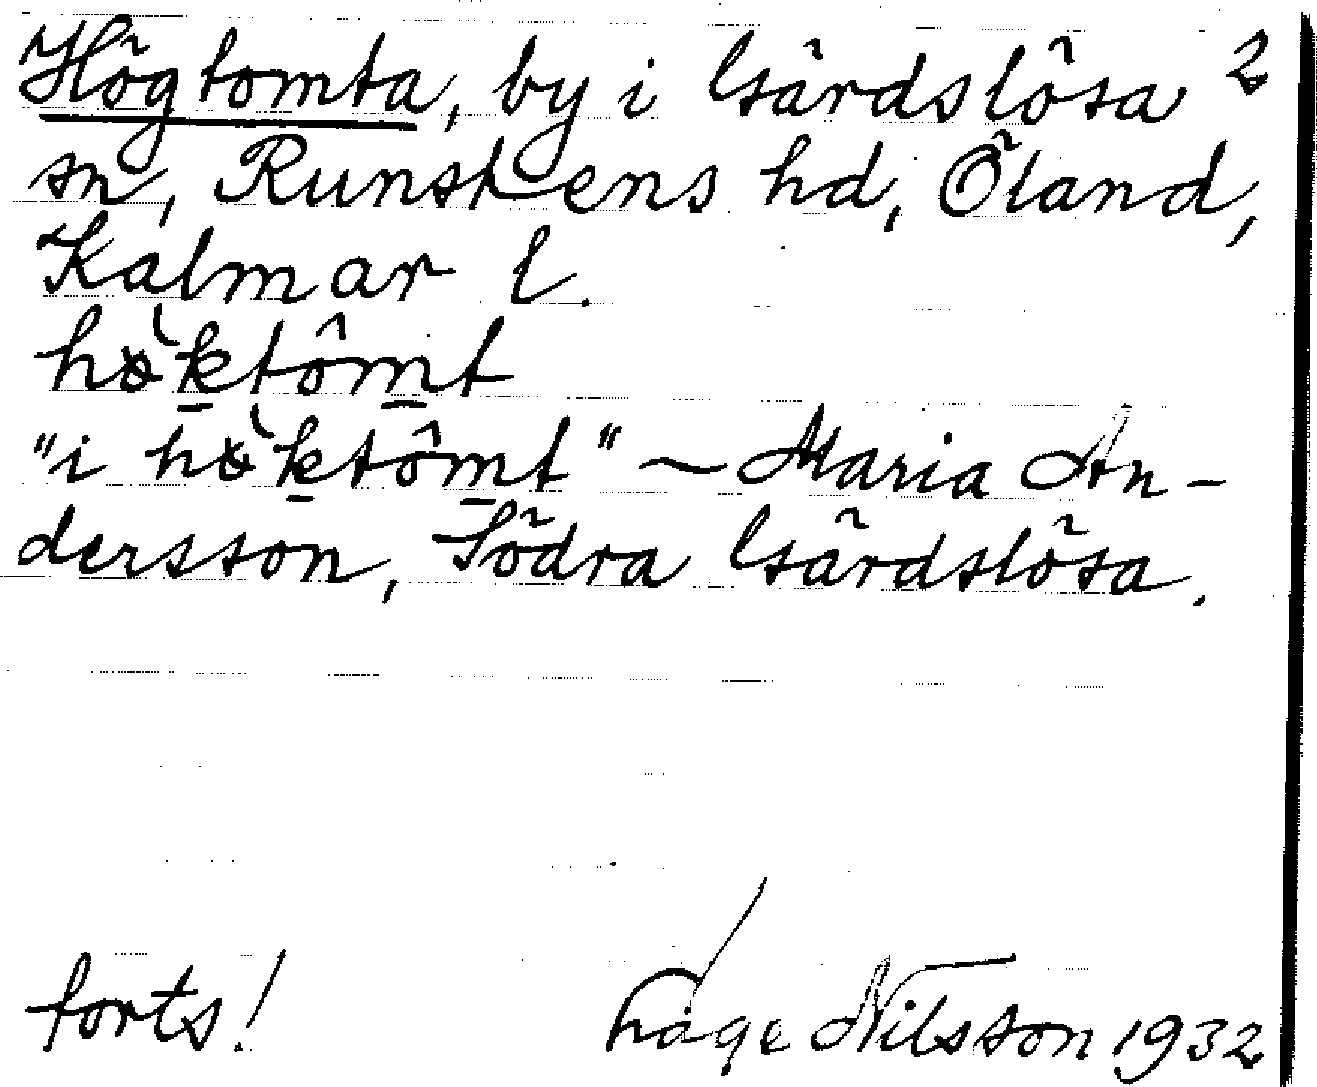 Högtomta, by i Gärdslösa 2
sn, Runstens hd, Öland,
Kalmar l.
hö̀ktômt
"i hö̀ktômt" ~ Maria An-
dersson, Södra Gärdslösa.
forts! Tage Nilsson 1932